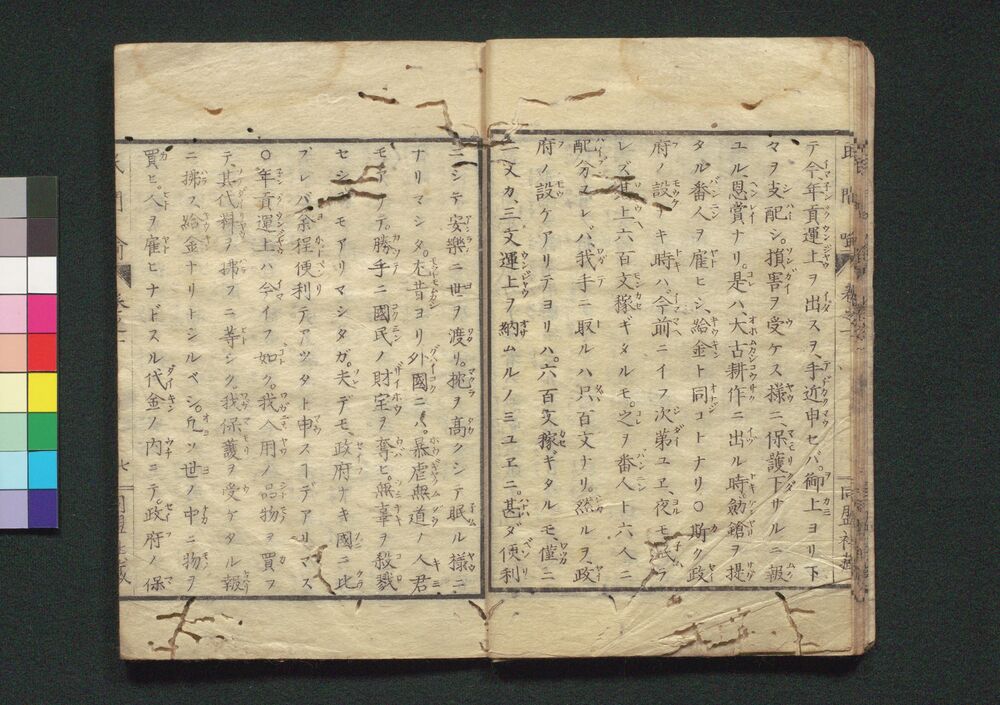 テ今年貢運上ヲ出スヲ、手近申セバ。御上ヨリ下
々ヲ支配シ。損害ヲ受ケヌ様ニ保護下サルニ報
ユル、恩賞ナリ。是ハ大古耕作ニ出ル時劔鎗ヲ提
タル番人ヲ雇ヒシ、給金ト同コトナリ〇斯ク政
府ノ設ナキ時ハ。今前ニイフ次第ユヱ夜モ眠ラ
レズ。其上六百文稼ギタルモ。之ヲ番人ト六人ニ
配分スレバ、我手ニ取ルハ只百文ナリ。然ルヲ、政
府ノ設ケアリテヨリハ。六百文稼ギタルモ僅ニ
二文カ、三文運上ヲ納ムルノミユヱニ。甚ダ便利
ニシテ安樂ニ世ヲ渡リ。枕ヲ高クシテ眠ル様ニ
ナリマシタ。尤昔ヨリ外國ニハ。暴虐無道ノ人君
モアリテ。勝手ニ國民ノ財宝ヲ奪ヒ。無辜ヲ殺戮
セシモアリマシタガ。夫デモ、政府ナキ國ニ比
ブレバ、余程便利デアツタト申スヿデアリマス
〇年貢運上ハ今イフ如ク。我入用ノ品物ヲ買フ
テ、其代料ヲ拂フニ等シク。我保護ヲ受ケタル報
ニ拂ス給金ナリトシルベシ。凡ソ世ノ中ニ物ヲ
買ヒ。人ヲ雇ヒナドスル代金ノ内ニテ。政府ノ保